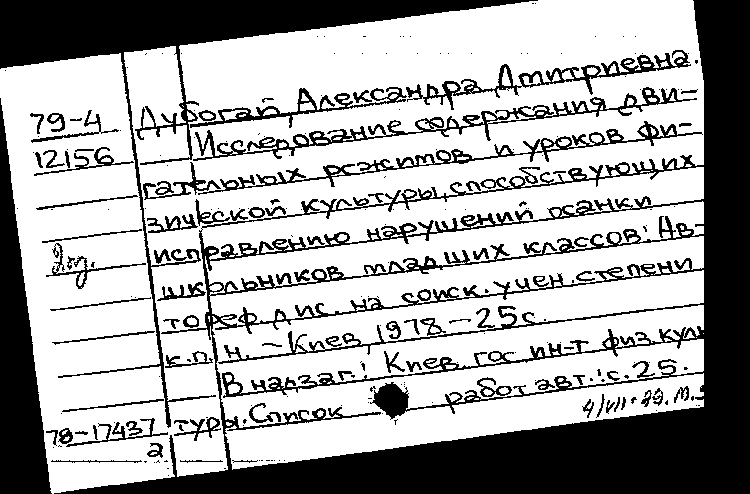 Дубогай, Александра Дмитриевна.
79-4
Исследование содержания дви-
12156
гательных режимов и уроков фи-
зической культуры, способствующих
исправлению нарушений осанки
школьников младших классов: Ав-
тореф. дис. на соиск. учен. степени
к.п.н. - Киев, 1978. - 25 с.
В надзаг.: Киев. гос. ин-т физ. куль
туры. Список работ авт.: с. 25.
78-17437
2